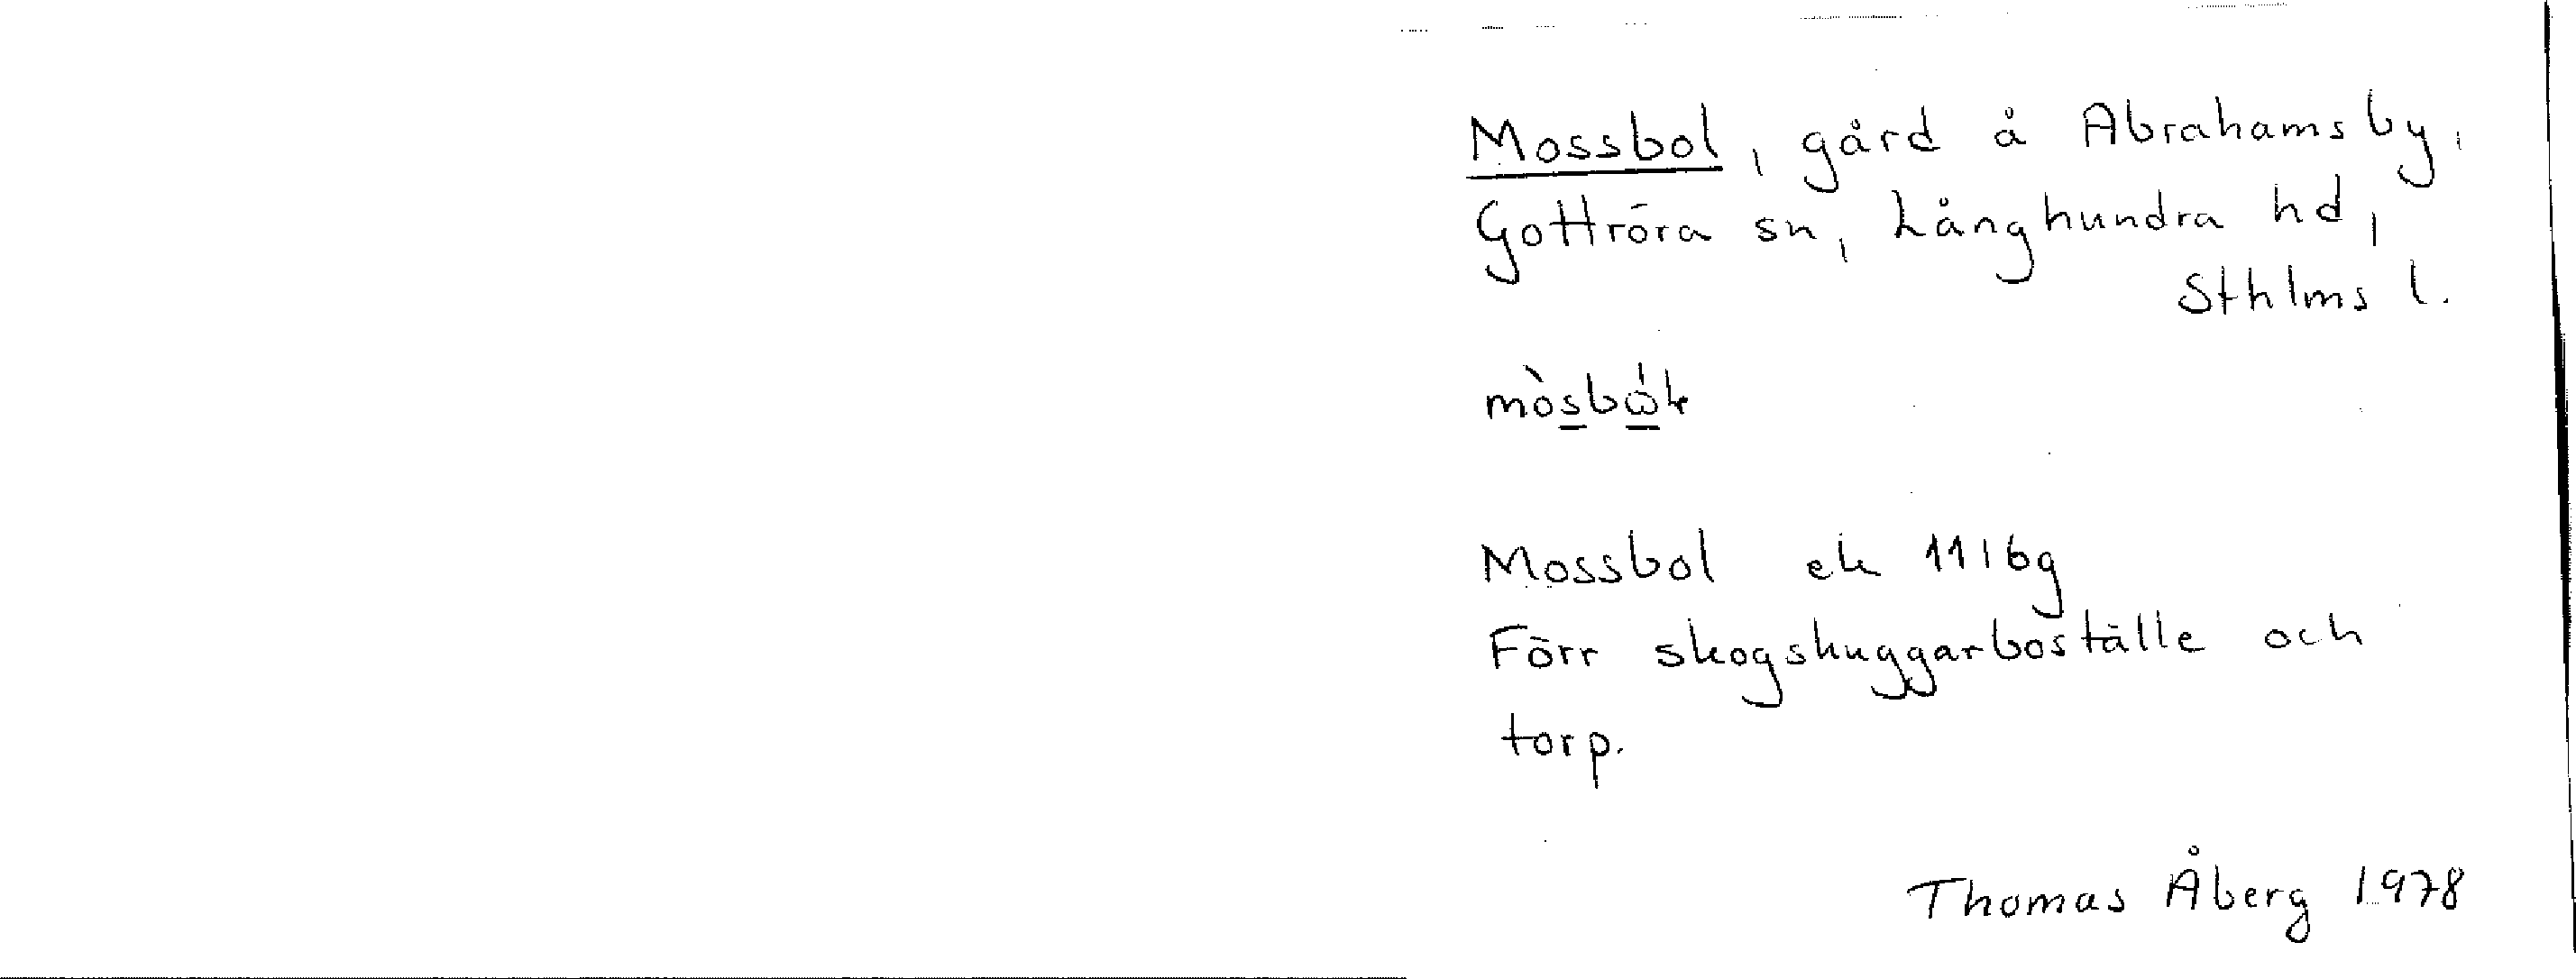 Mossbol, gård å Abrahamsby,
Gottröra sn, Långhundra hd,
Sthlms l.
Mossbol ek 11I6g
Förr skogshuggarboställe och
torp.
Thomas Åberg 1978